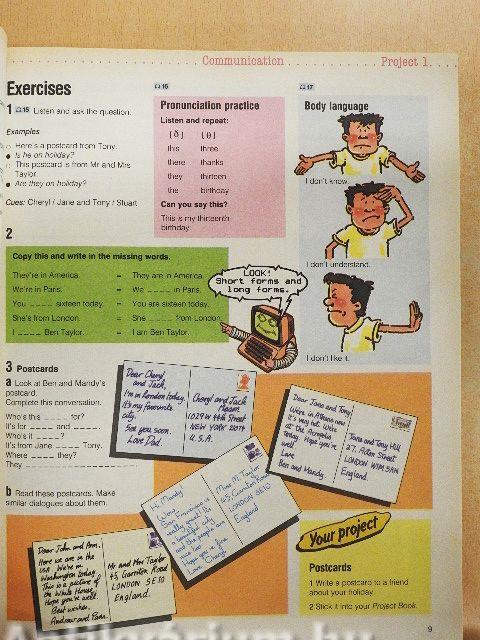 Communication Project 1
Exercises
1 15 Listen and ask the question.
Examples
Here's a postcard from Tony.
Is he on holiday?
This postcard is from Mr and Mrs
Taylor.
Are they on holiday?
Cues: Cheryl / Jane and Tony / Stuart
16
Pronunciation practice
Listen and repeat:
[ð] [θ]
this three
there thanks
they thirteen
the birthday
Can you say this?
This is my thirteenth
birthday.
17
Body language
I don't know.
I don't understand.
I don't like it.
2
Copy this and write in the missing words.
They're in America. = They are in America.
We're in Paris. = We ____ in Paris.
You ____ sixteen today. = You are sixteen today.
She's from London. = She ____ from London.
I ____ Ben Taylor. = I am Ben Taylor.
LOOK!
Short forms and
long forms.
3 Postcards
a Look at Ben and Mandy's
postcard.
Complete this conversation.
Who's this ____ for?
It's for ____ and ____.
Who's it ____?
It's from Jane ____ Tony.
Where ____ they?
They ____
b Read these postcards. Make
similar dialogues about them.
Dear Cheryl
and Jack,
I'm in London today.
It's my favourite
city.
See you soon.
Love Dad.
Cheryl and Jack
1029 W 44th Street
NEW YORK
U.S.A.
Dear Jane and Tony
We're in Athens now
It's very hot. We're
at the Acropolis
today. Hope you're
well.
Love
Ben and Mandy.
Jane and Tony Hill
27, Alton Street
LONDON
England.
Hi Mandy
San Francisco is
really great! It's
a beautiful city
and the people are
nice too.
Hope you're fine
Love
Miss M. Taylor
45, Garriton Road
LONDON SE10
England
Dear John and Ann,
Here we are in the
USA. We're in
Washington today.
This is a picture of
the White House.
Hope you're well.
Best wishes,
Andrew and Pam.
Mr and Mrs Taylor
45, Garriton Road
LONDON SE10
England.
Your project
Postcards
1 Write a postcard to a friend
about your holiday.
2 Stick it into your Project Book.
9